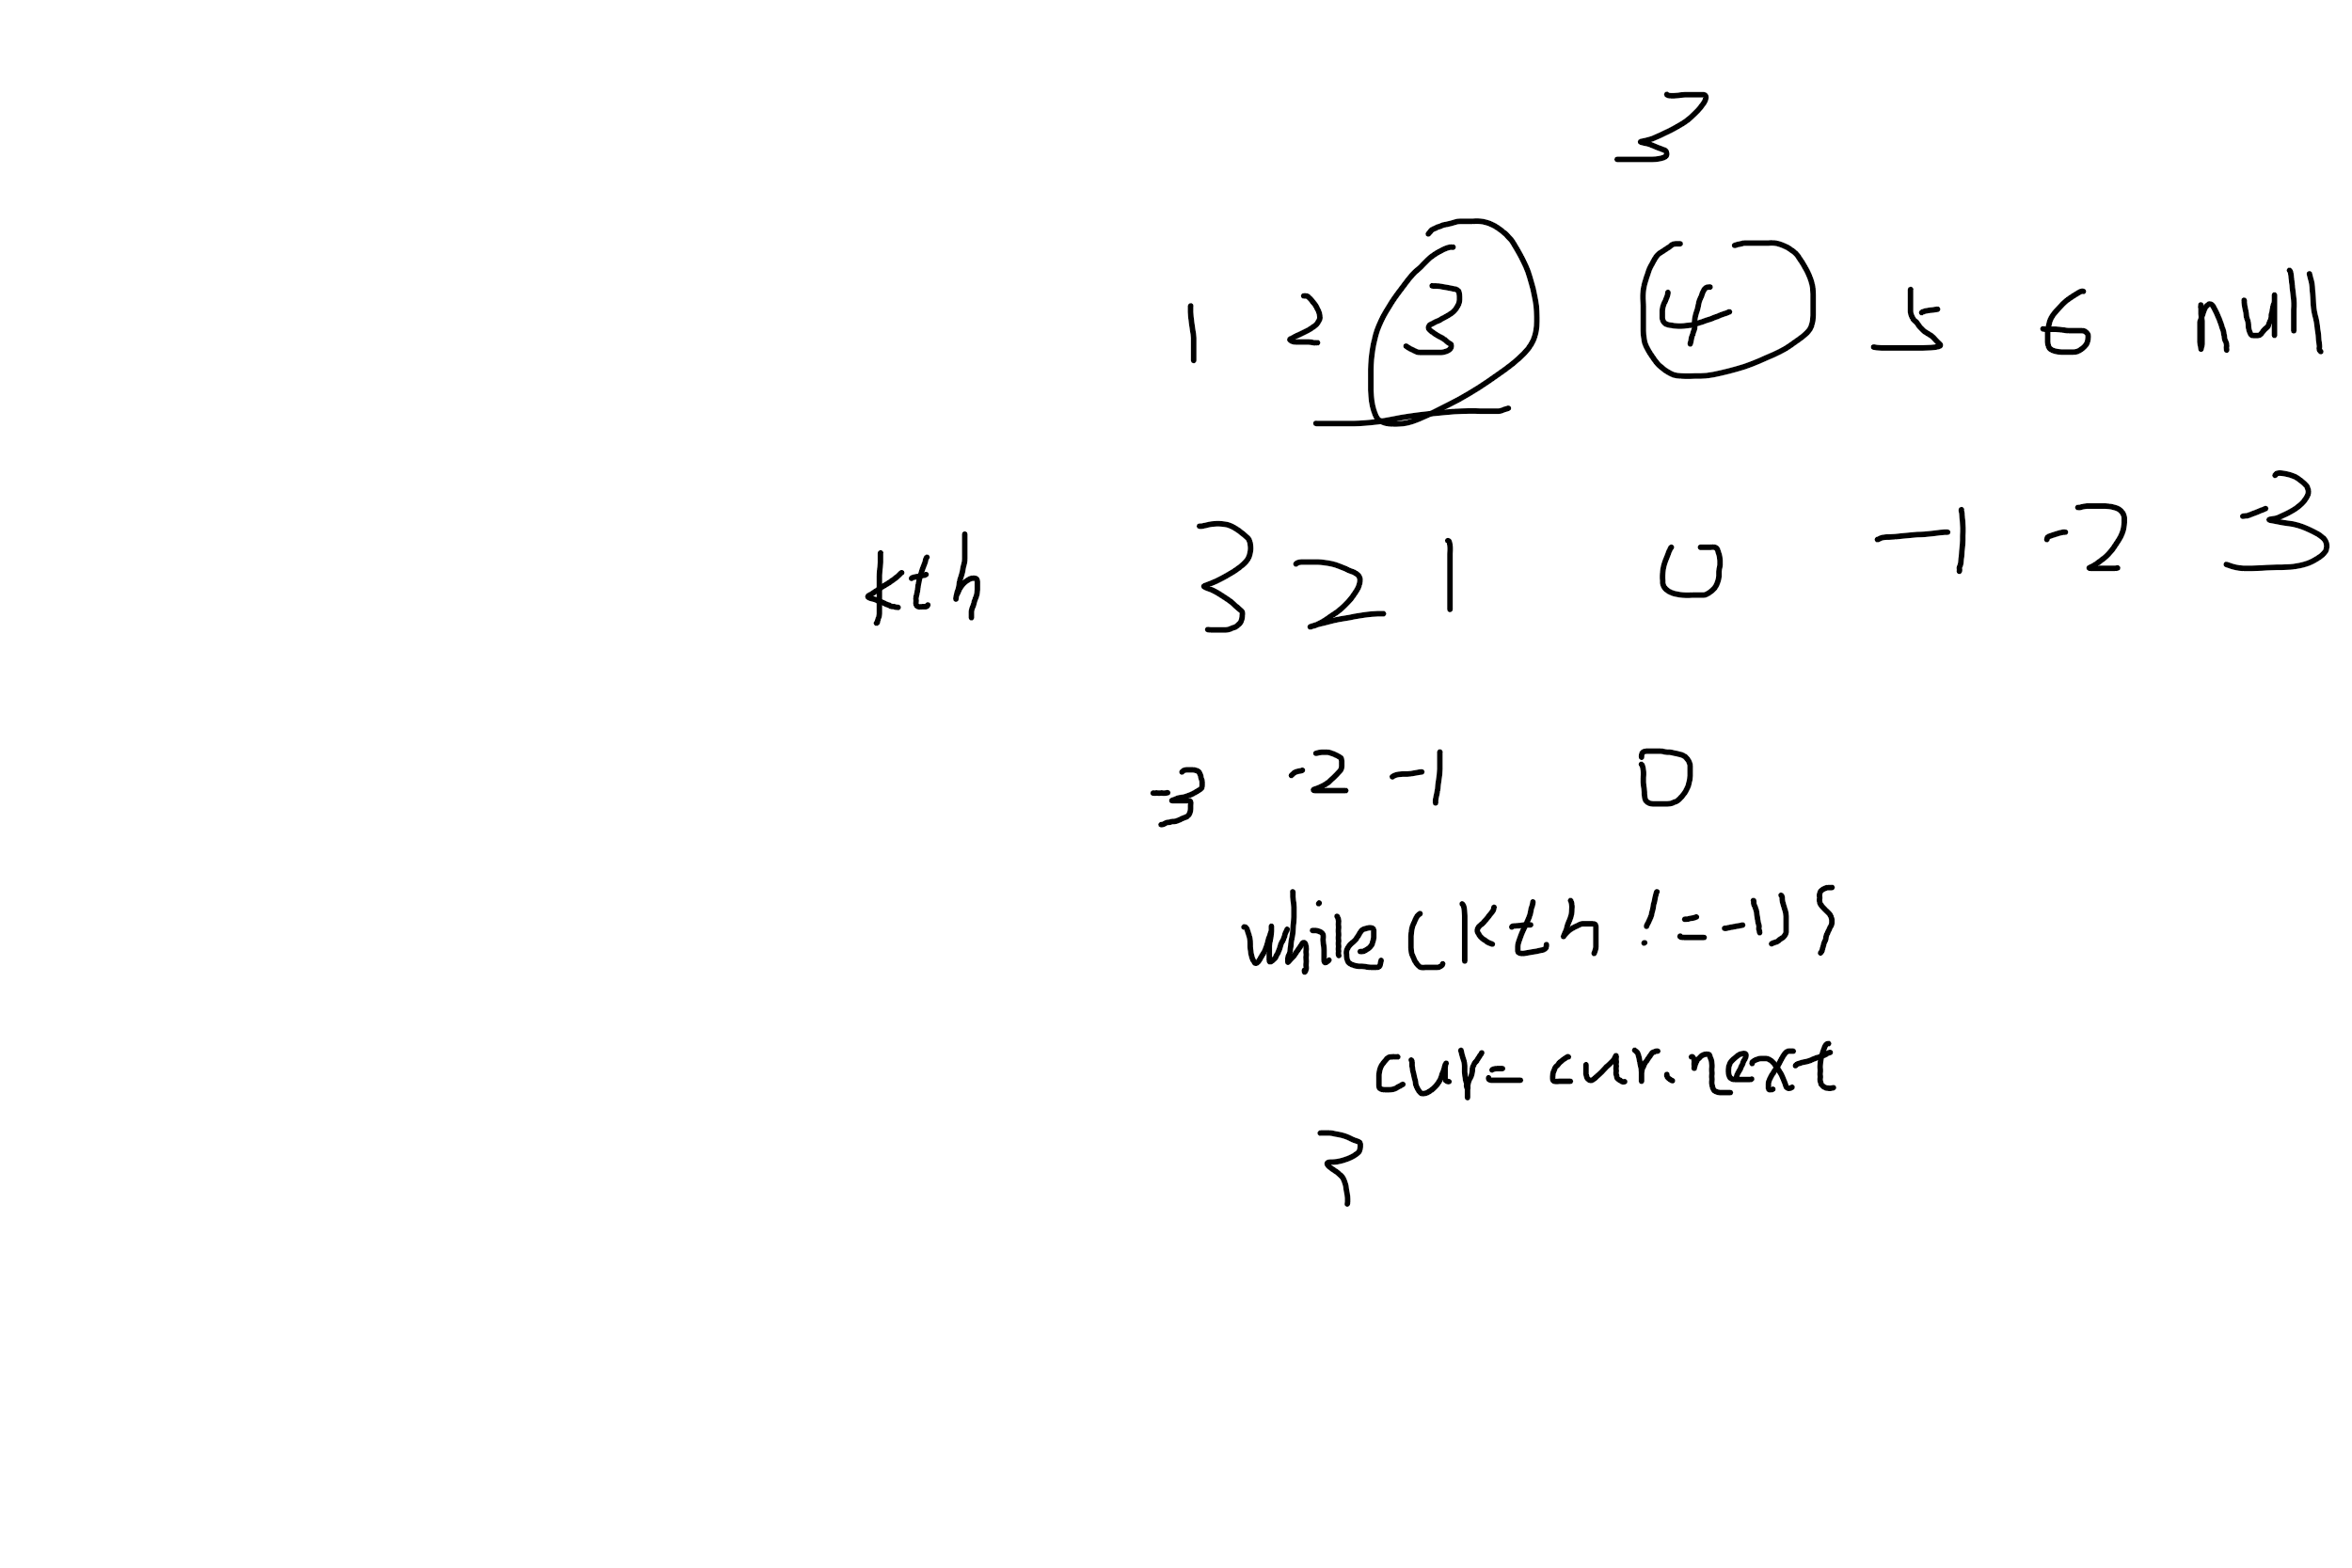 3
1 2 3 4 5 6 null
kth 3 2 1 0 -1 -2 -3
-3 -2 -1 0
while (kth != -1) {
cur = cur.next
}